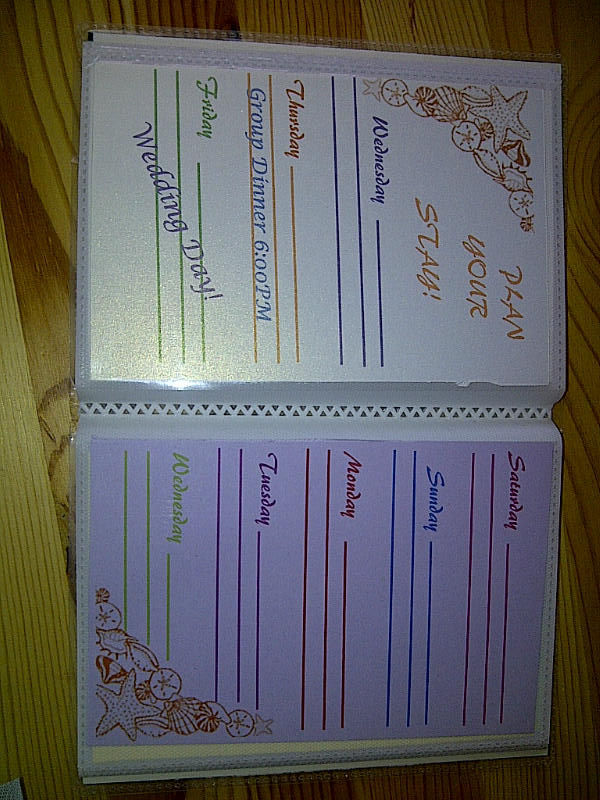 PLAN
YOUR
STAY!
Wednesday
Thursday
Group Dinner 6:00PM
Friday
Wedding Day!
Saturday
Sunday
Monday
Tuesday
Wednesday